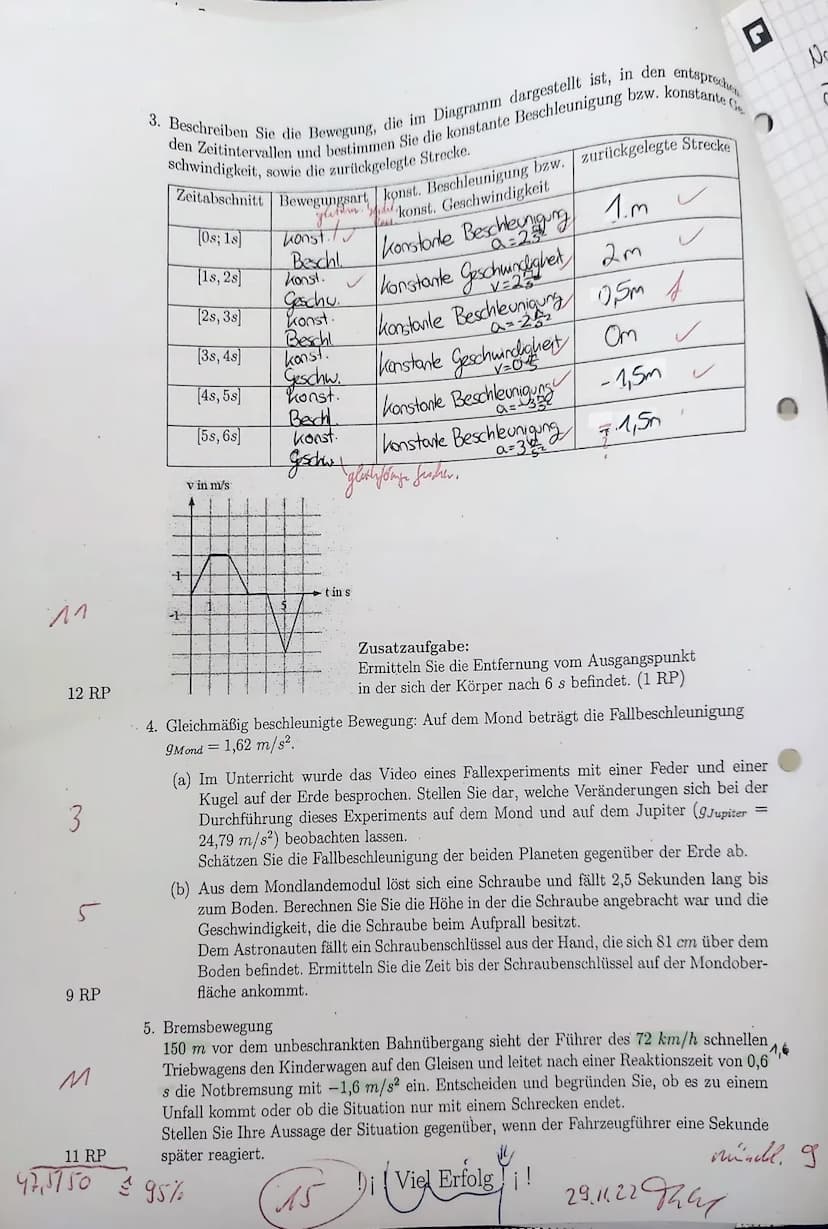 3. Beschreiben Sie die Bewegung, die im Diagramm dargestellt ist, in den entsprechen
den Zeitintervallen und bestimmen Sie die konstante Beschleunigung bzw. konstante Ge
schwindigkeit, sowie die zurückgelegte Strecke.
Zeitabschnitt Bewegungsart konst. Beschleunigung bzw. konst. Geschwindigkeit zurückgelegte Strecke
[0s; 1s] konst. Beschl. konstante Beschleunigung a=2 m/s² 1 m
[1s, 2s] konst. Geschw. konstante Geschwindigkeit v=2 m/s 2m
[2s, 3s] konst. Beschl konstante Beschleunigung a=-2 m/s² 0,5m f
[3s, 4s] konst. Geschw. konstante Geschwindigkeit v=0 m/s 0m
[4s, 5s] konst. Beschl. konstante Beschleunigung a=-3 m/s² -1,5m
[5s, 6s] konst. Geschw. konstante Beschleunigung a=3 m/s² 1,5m
v in m/s
1
1
5
t in s
-1
11
12 RP
Zusatzaufgabe:
Ermitteln Sie die Entfernung vom Ausgangspunkt
in der sich der Körper nach 6 s befindet. (1 RP)
4. Gleichmäßig beschleunigte Bewegung: Auf dem Mond beträgt die Fallbeschleunigung
gMond = 1,62 m/s².
(a) Im Unterricht wurde das Video eines Fallexperiments mit einer Feder und einer
Kugel auf der Erde besprochen. Stellen Sie dar, welche Veränderungen sich bei der
3
Durchführung dieses Experiments auf dem Mond und auf dem Jupiter (gJupiter =
24,79 m/s²) beobachten lassen.
Schätzen Sie die Fallbeschleunigung der beiden Planeten gegenüber der Erde ab.
(b) Aus dem Mondlandemodul löst sich eine Schraube und fällt 2,5 Sekunden lang bis
5
zum Boden. Berechnen Sie Sie die Höhe in der die Schraube angebracht war und die
Geschwindigkeit, die die Schraube beim Aufprall besitzt.
Dem Astronauten fällt ein Schraubenschlüssel aus der Hand, die sich 81 cm über dem
Boden befindet. Ermitteln Sie die Zeit bis der Schraubenschlüssel auf der Mondober-
9 RP
fläche ankommt.
5. Bremsbewegung
150 m vor dem unbeschrankten Bahnübergang sieht der Führer des 72 km/h schnellen
1,6
Triebwagens den Kinderwagen auf den Gleisen und leitet nach einer Reaktionszeit von 0,6
11
s die Notbremsung mit −1,6 m/s² ein. Entscheiden und begründen Sie, ob es zu einem
Unfall kommt oder ob die Situation nur mit einem Schrecken endet.
Stellen Sie Ihre Aussage der Situation gegenüber, wenn der Fahrzeugführer eine Sekunde
11 RP
später reagiert.
47,5/50 ≙ 95%
15
!¡ Viel Erfolg ¡!
mündl. 9
29.11.22